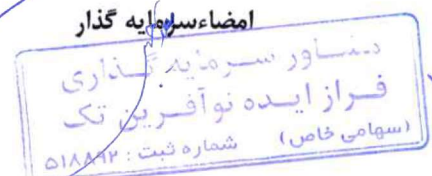 امضاء سرمایه گذار
مشاور سرمایه گذاری
فراز ایده نوآفرین تک
(سهامی خاص) شماره ثبت : ۵۱۸۸۹۲